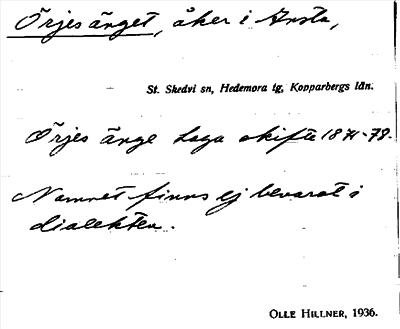 Örjesänget, åker i Arsta,
St. Skedvi sn, Hedemora tg, Kopparbergs län.
Örjes änge Laga skifte 1871-78.
Namnet finns ej bevarat i
dialekten.
OLLE HILLNER, 1936.